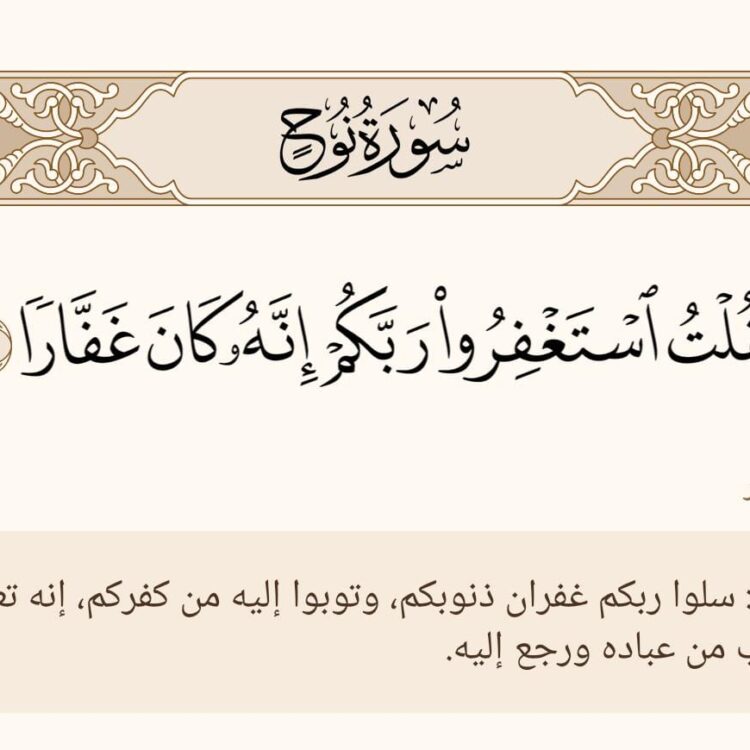 سُورَةُ نُوحٍ
ٱسۡتَغۡفِرُواْ رَبَّكُمۡ إِنَّهُۥ كَانَ غَفَّارٗا
: سلوا ربكم غفران ذنوبكم، وتوبوا إليه من كفركم، إنه
من عباده ورجع إليه.